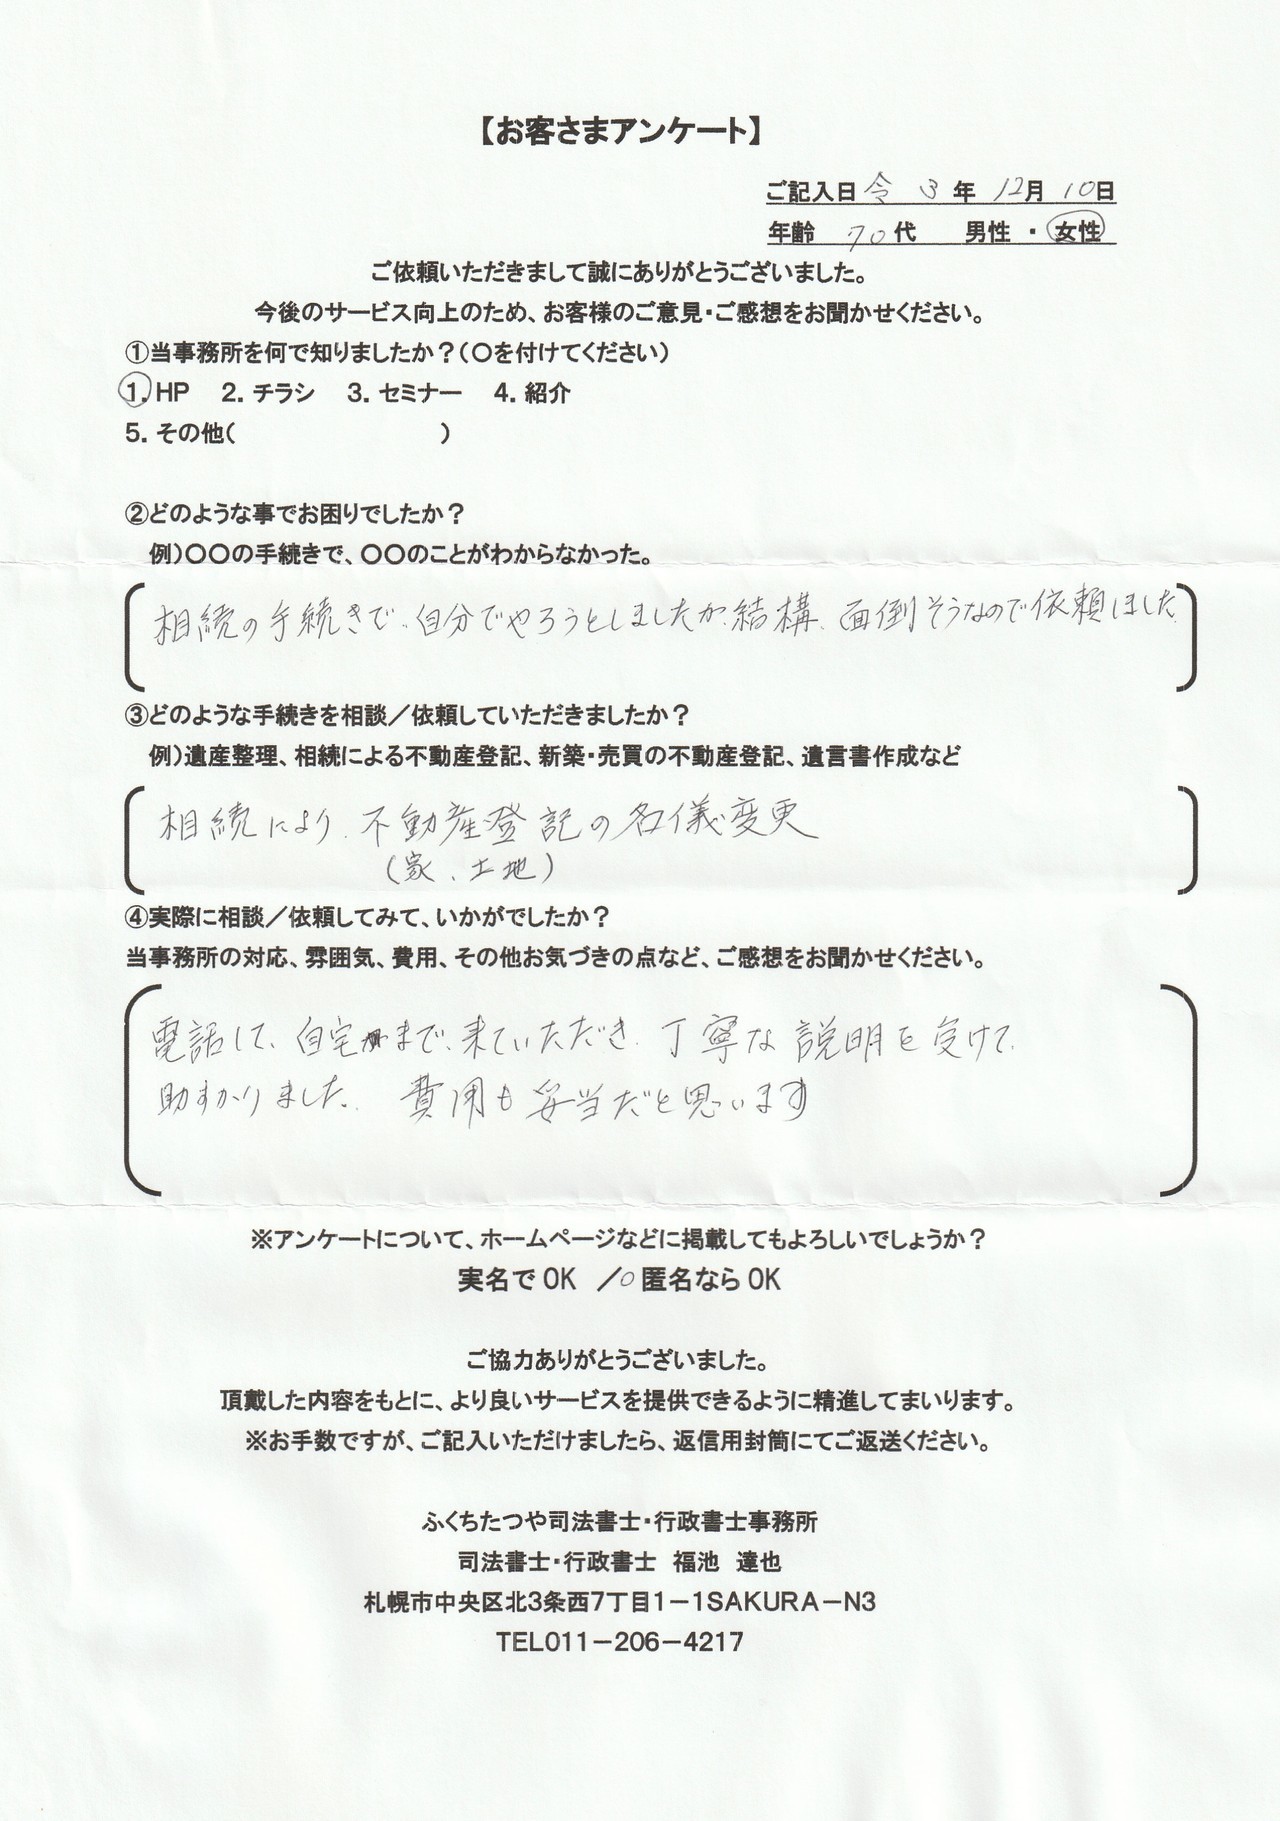 【お客さまアンケート】
ご記入日 令 3 年 12月 10日
年齢 70代 男性 ・ 女性
ご依頼いただきまして誠にありがとうございました。
今後のサービス向上のため、お客様のご意見・ご感想をお聞かせください。
①当事務所を何で知りましたか？（〇を付けてください）
1. HP 2. チラシ 3. セミナー 4. 紹介
5. その他（ ）
②どのような事でお困りでしたか？
例）〇〇の手続きで、〇〇のことがわからなかった。
相続の手続きで、自分でやろうとしましたが、結構、面倒そうなので依頼しました
③どのような手続きを相談／依頼していただきましたか？
例）遺産整理、相続による不動産登記、新築・売買の不動産登記、遺言書作成など
相続により、不動産登記の名儀変更
（家、土地）
④実際に相談／依頼してみて、いかがでしたか？
当事務所の対応、雰囲気、費用、その他お気づきの点など、ご感想をお聞かせください。
電話して、自宅まで、来ていただき、丁寧な説明を受けて、
助すかりました。 費用も妥当だと思います
※アンケートについて、ホームページなどに掲載してもよろしいでしょうか？
実名でOK ／〇匿名ならOK
ご協力ありがとうございました。
頂戴した内容をもとに、より良いサービスを提供できるように精進してまいります。
※お手数ですが、ご記入いただけましたら、返信用封筒にてご返送ください。
ふくちたつや司法書士・行政書士事務所
司法書士・行政書士 福池 達也
札幌市中央区北3条西7丁目1－1SAKURA－N3
TEL011－206－4217